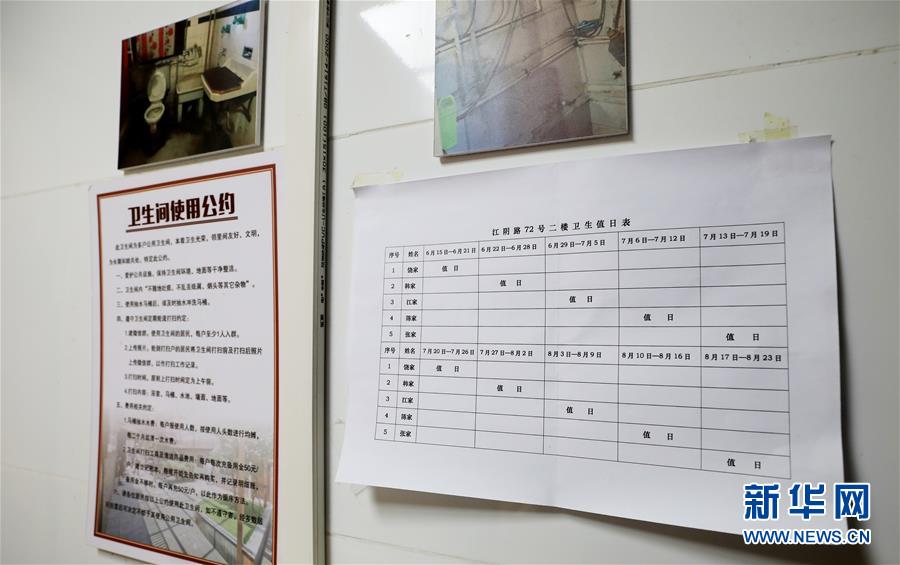 卫生间使用公约
此卫生间为多户公用卫生间，本着卫生光荣，邻里间友好、文明，
为长期和睦共处，特定此公约。
一、爱护公共设施，保持卫生间环境，地面等干净整洁。
二、卫生间内“不随地吐痰，不乱丢纸屑，烟头等其它杂物”。
三、使用抽水马桶后，须及时抽水冲洗马桶。
四、遵守卫生间定期轮流打扫约定：
1.建微信群，使用卫生间的居民，每户至少1人入群。
2.上传照片，轮到打扫户的居民将卫生间打扫前及打扫后照片
上传微信群，以作打扫工作记录。
3.打扫时间，原则上打扫时间定为上午前。
4.打扫内容：浴室、马桶、水池、墙面、地面等。
五、费用相关约定：
1.马桶抽水水费，每户按使用人数，按使用人头数进行均摊，
每二个月结清一次水费。
2.卫生间打扫工具及清洁用品费用：每户每次充备用金50元/
户，建立记账本，
备用金不够时，每户再充50元/户，以此作为循环方法。
江阴路72号二楼卫生值日表
序号 姓名 6月15日—6月21日 6月22日—6月28日 6月29日—7月5日 7月6日—7月12日 7月13日—7月19日
1 饶家 值 日
2 韩家 值 日
3 江家 值 日
4 陈家 值 日
5 张家 值 日
序号 姓名 7月20日—7月26日 7月27日—8月2日 8月3日—8月9日 8月10日—8月16日 8月17日—8月23日
1 饶家 值 日
2 韩家 值 日
3 江家 值 日
4 陈家 值 日
5 张家 值 日
新华网
WWW.NEWS.CN